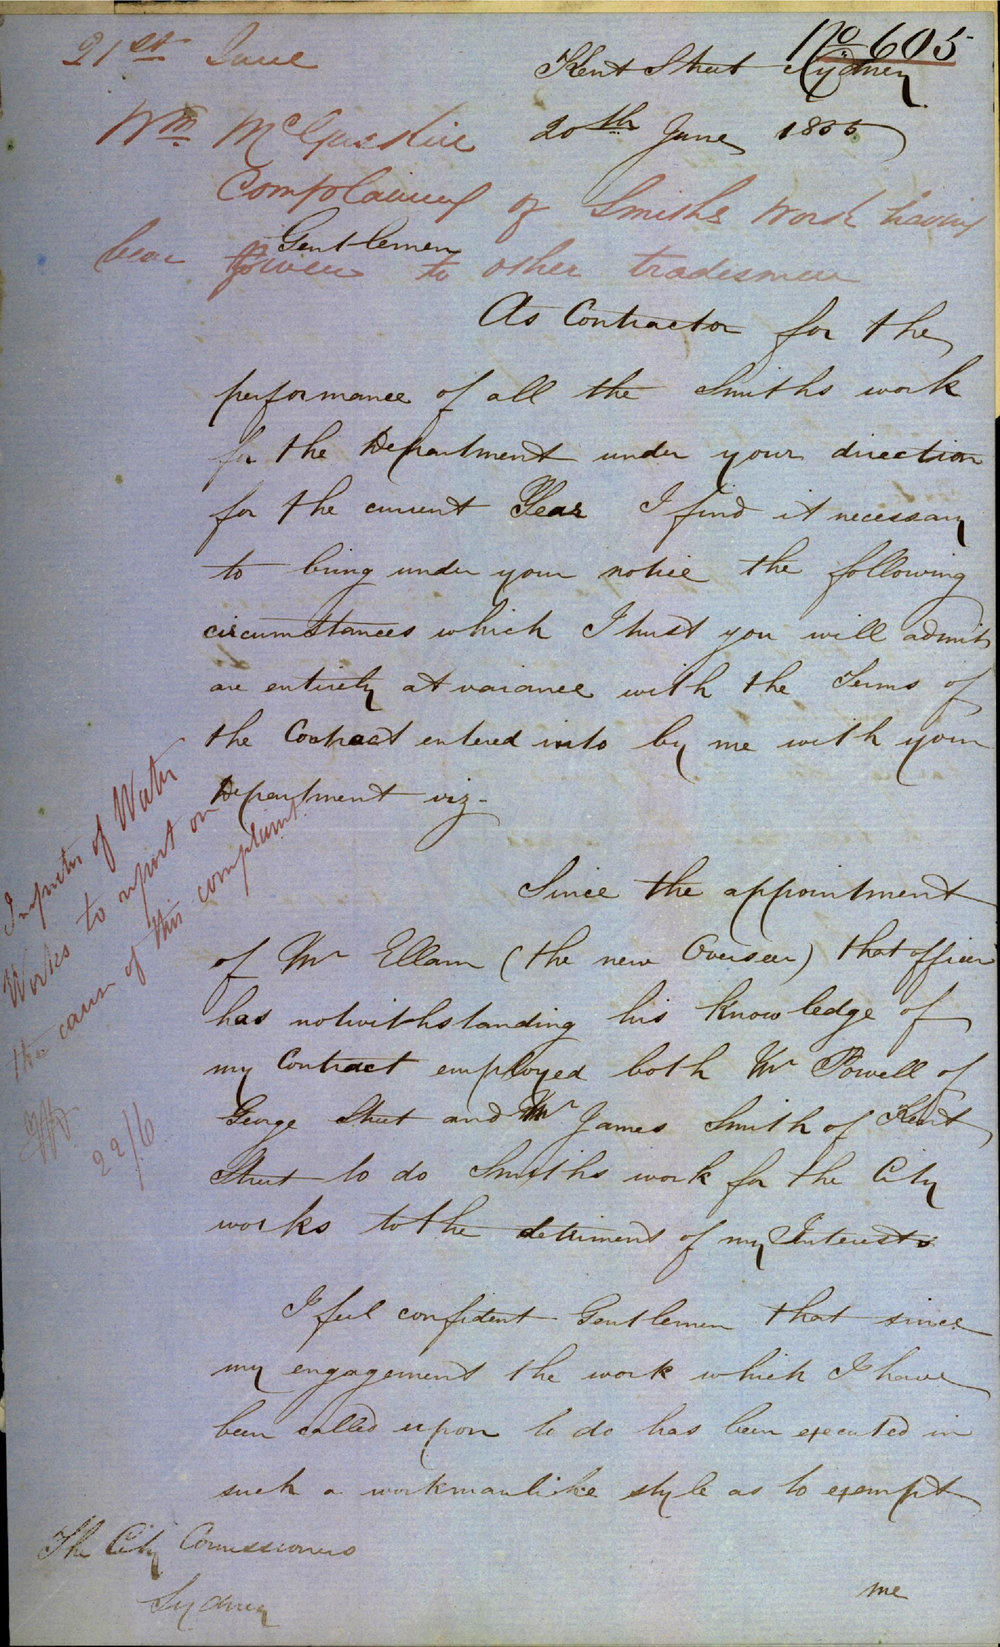 No 605
21st June
Kent Street Sydney
20th June 1855
Wm McGaskill
Complaining of Smiths Work having
been given to other tradesmen
Gentlemen
As Contractor for the
performance of all the Smiths work
for the Department under your direction
for the current Year I find it necessary
to bring under your notice the following
circumstances which I trust you will admit
are entirely at variance with the Terms of
the Contract entered into by me with your
Department viz-
Since the appointment
of Mr Ellam (the new Overseer) that officer
has notwithstanding his knowledge of
my Contract employed both Mr Powell of
George Street and Mr James Smith of Kent
Street to do Smiths work for the City
works to the detriment of my Interests
I feel confident Gentlemen that since
my engagement the work which I have
been called upon to do has been executed in
such a workmanlike style as to exempt
me
The City Commissioners
Sydney
Inspector of Water
Works to report on
the cause of this complaint
22/6